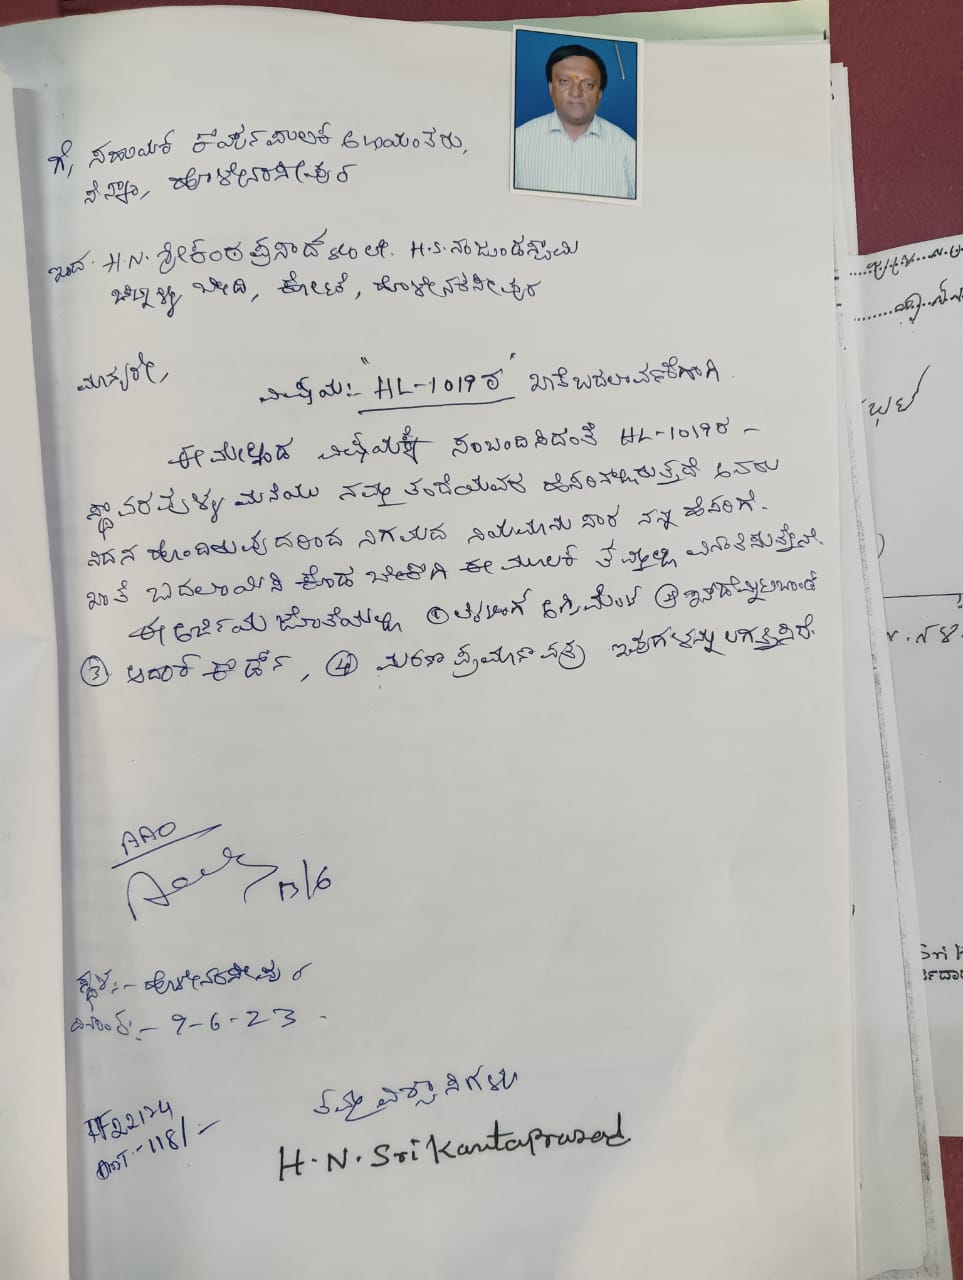 ಗೆ, ಸಹಾಯಕ ಕಾರ್ಯಪಾಲಕ ಅಭಿಯಂತರು,
ಸೆಸ್ಕಾಂ, ಹೊಳೇನರಸೀಪುರ
ಇಂದ. H.N. ಶ್ರೀಕಂಠ ಪ್ರಸಾದ್ ಲೇ. H.S. ನಂಜುಂಡಸ್ವಾಮಿ
ಬೀದಿ, ಕೋಟೆ, ಹೊಳೇನರಸೀಪುರ
ಮಾನ್ಯರೇ,
ವಿಷಯ:- "HL-1019 ರ" ಖಾತೆ ಬದಲಾವಣೆಗಾಗಿ.
ಈ ಮೇಲ್ಕಂಡ ವಿಷಯಕ್ಕೆ ಸಂಬಂದಿಸಿದಂತೆ HL-1019 ರ -
ಸ್ಥಾವರವುಳ್ಳ ಮನೆಯು ನಮ್ಮ ತಂದೆಯವರ ಹೆಸರಿನಲ್ಲಿರುತ್ತದೆ ಅವರು
ನಿದನ ಹೊಂದಿರುವುದರಿಂದ ನಿಗಮದ ನಿಯಮಾನುಸಾರ ನನ್ನ ಹೆಸರಿಗೆ.
ಖಾತೆ ಬದಲಾಯಿಸಿ ಕೊಡಬೇಕಾಗಿ ಈ ಮೂಲಕ ತಮ್ಮಲ್ಲಿ ವಿನಂತಿಸುತ್ತೇನೆ.
ಈ ಅರ್ಜಿಯ ಜೊತೆಯಲ್ಲಿ ① ಅಗ್ರಿಮೆಂಟ್ ② ಇನ್ಡೆಮ್ನಿಟಿ ಬಾಂಡ್
③ ಆದಾರ್ ಕಾರ್ಡ್, ④ ಮರಣ ಪ್ರಮಾಣ ಪತ್ರ ಇವುಗಳನ್ನು ಲಗತ್ತಿಸಿದೆ.
AAO
13/6
ಸ್ಥಳ:- ಹೊಳೇನರಸೀಪುರ
ದಿನಾಂಕ:- 9-6-23.
ತಮ್ಮ ವಿಶ್ವಾಸಿಗಳು
H.N. SriKantaprasad
22124
118/-